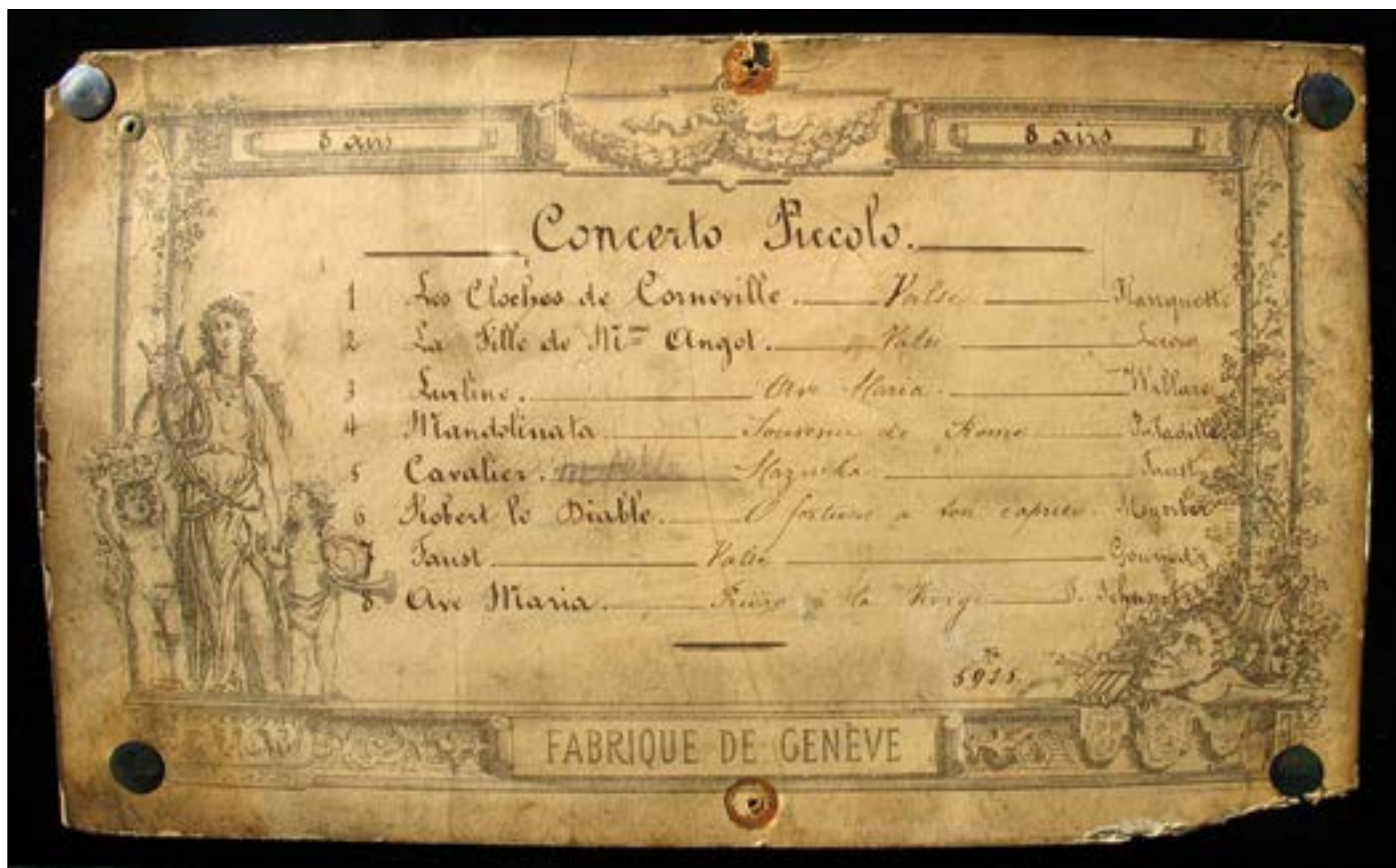 8 airs 8 airs
Concerto Piccolo.
1 Les Cloches de Corneville. Valse Planquette
2 La Fille de Mme Angot. Valse Lecoq
3 Lurline. Ave Maria. Wallace
4 Mandolinata Souvenir de Rome Paladille
5 Cavalier. Mazurka Faust
6 Robert le Diable. O fortune a ton caprice. Meyerber
7 Faust Valse Gounod
8 Ave Maria. Prière à la Vierge F. Schubert
No
5925.
FABRIQUE DE GENÈVE